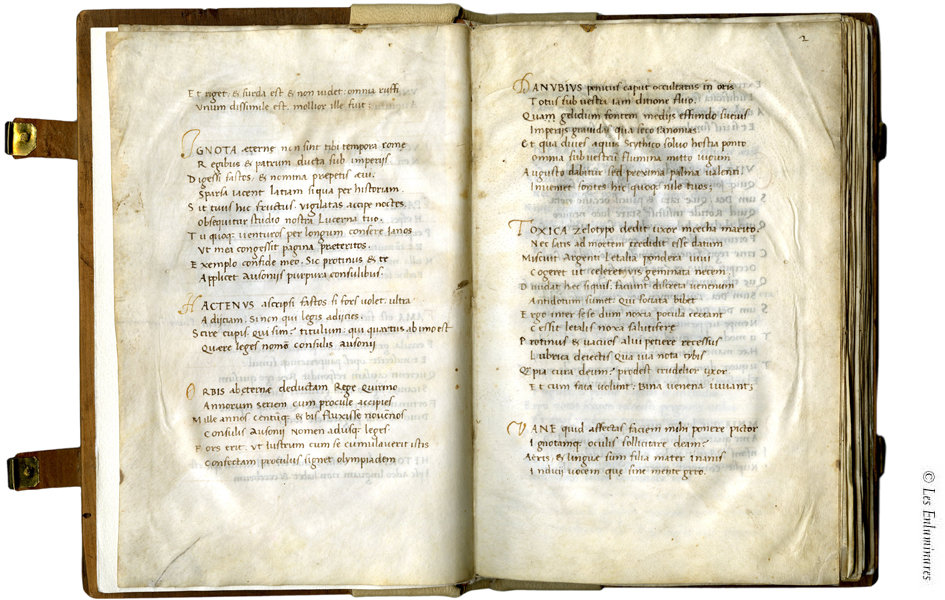 Et riget, & surda est & non videt: omnia ruffi
Unum dissimile est, mollior ille fuit;
IGNOTA æternę non sint tibi tempora romę
Regibus & patrum ducta sub imperijs
Digessi fastos, & nomina prępetis ævi:
Sparsa iacent latiam siqua per historiam.
Sit tuus hic fructus. vigilatas accipe noctes
Obsequitur studio nostra Lucerna tuo.
Tu quoq; venturos per longum consere Ianos
Ut mea congessit pagina præteritos.
Exemplo confide meo, Sic protinus & te
Applicet Ausonijs purpura consulibus.
HACTENVS ascripsi fastos si fors volet, ultra
Adijciam. Si non qui legis adijcies.
Scire cupis, qui sim? titulum, qui quartus ab imo est
Quære leges nomen consulis Ausonij
VRBIS ab æternæ deductam Rege Quirino
Annorum seriem cum procule accipies
Mille annos centūq; & bis fluxisse novēnos
Consulis Ausonii nomen adusq; leges
Fors erit, ut lustrum cum se cumulaverit istis
Confectam proculus signet olympiadem
2
DANVBIVS penitus caput occultatus in oris
Totus sub vestra iam ditione fluo.
Quam gelidum fontem medijs effundo suevis
Imperijs gravidas qua seco pannonias.
Et qua dives aquis Scythico solvo hostia ponto
Omnia sub vestrū flumina mitto iugum
Augusto dabitur sed proxima palma valenti.
Inveniet fontes hic quoq; nile tuos;
TOXICA zelotypo dedit uxor mœcha marito.
Nec satis ad mortem credidit esse datum
Miscuit Argenti Letalia pondera vivi
Cogeret ut celerem vis geminata necem;
Dividat hęc siquis. faciunt discreta venenum
Antidotum sumet. qui sociata bibet
Ergo inter sese dum noxia pocula certant
Cessit letalis noxa salutiferę
Protinus & vacuos alvi petiere recessus
Lubrica deiectis qua via nota cibis
Quam pia cura deum? prodest crudelior uxor.
Et cum fata volunt; Bina venena iuvant;
VANE quid affectas faciem mihi ponere pictor
Ignotamq; oculis sollicitare deam?
Aeris, & linguę sum filia mater inanis
Indicij vocem que sine mente gero.
© Les Enluminures